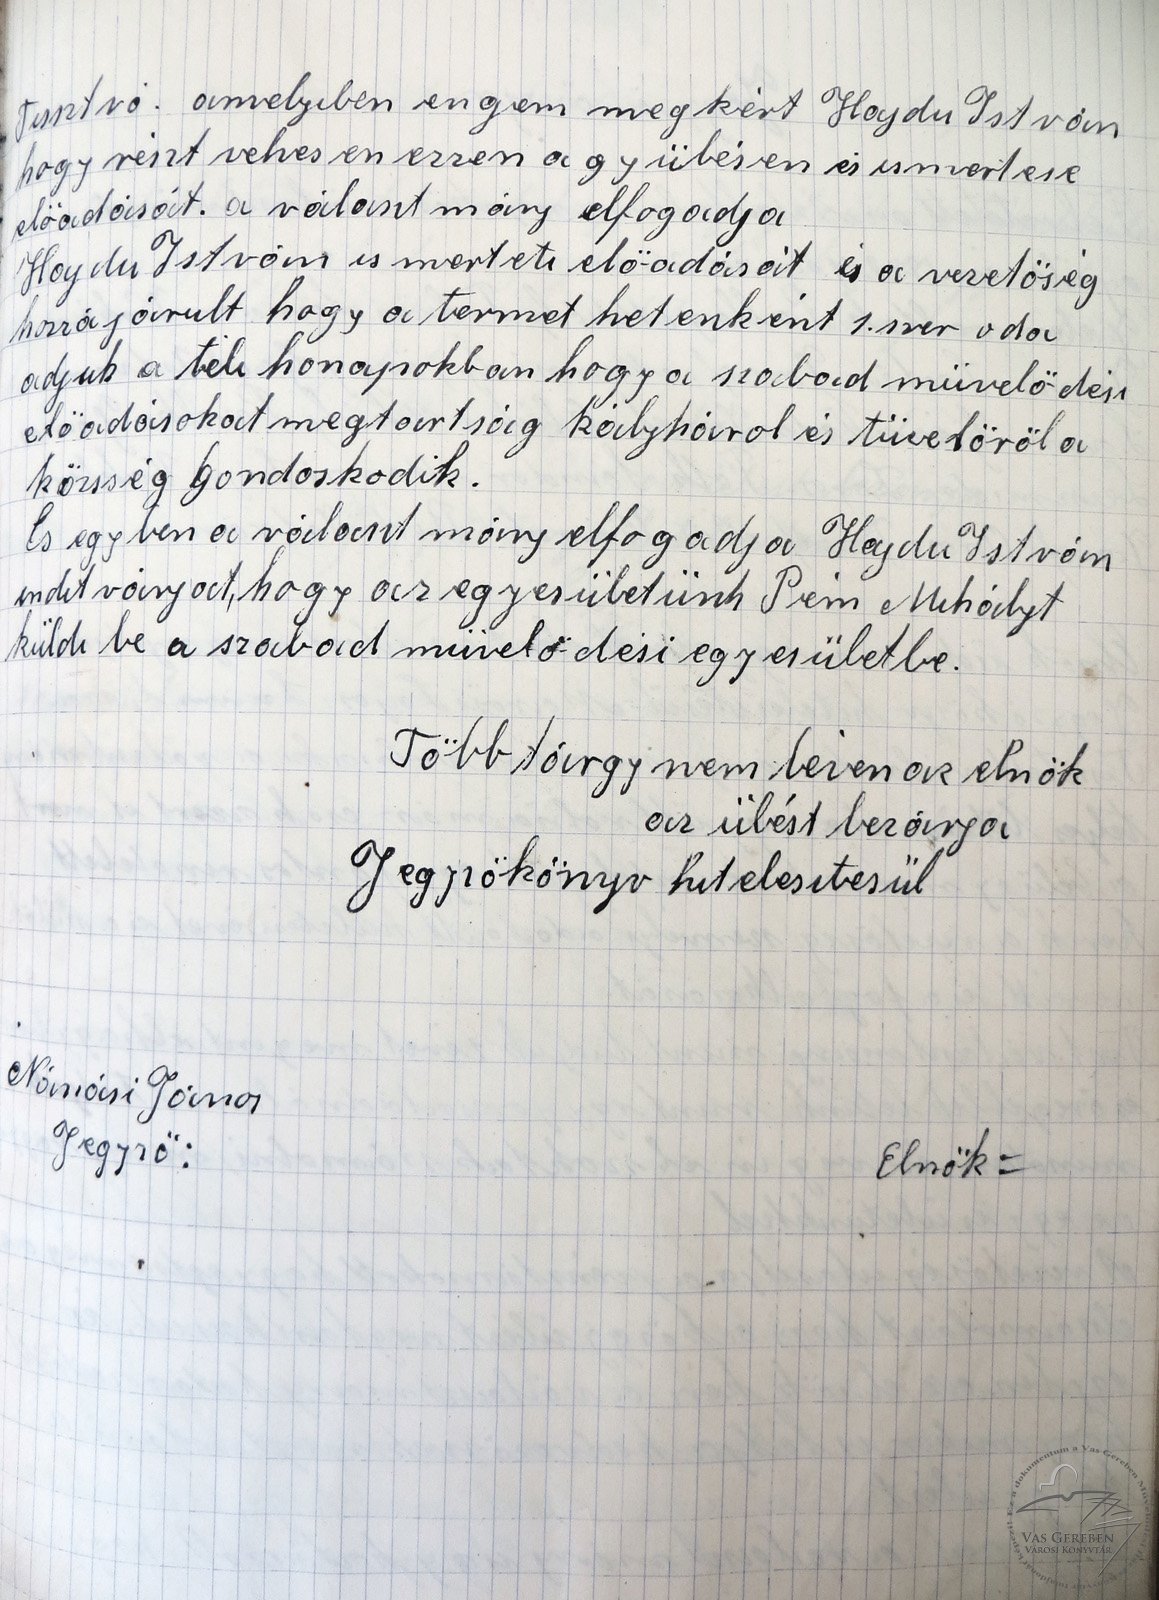 Tisztvő. amelyben engem megkért Hajdu István
hogy részt vehesen ezzen a gyülésen és ismertese
előadásáit. a választmány elfogadja
Hajdu István ismerteti előadásáit és a vezetőség
hozzájárult hogy a termet hetenként 1.szer oda
adjuk a téli honapokban hogy a szabad müvelődési
előadásokat megtartság kályháról és tüzelöröl a
község gondoskodik.
És egyben a választmány elfogadja Hajdu István
inditványát, hogy az egyesületünk Pém Mihályt
küldi be a szabad müvelődési egyesületbe.
Több tárgy nem lévén az elnök
az ülést bezárja
Jegyzökönyv hitelesitésül
Námási János
Jegyző:
Elnök=
VAS GEREBEN
VÁROSI KÖNYVTÁR